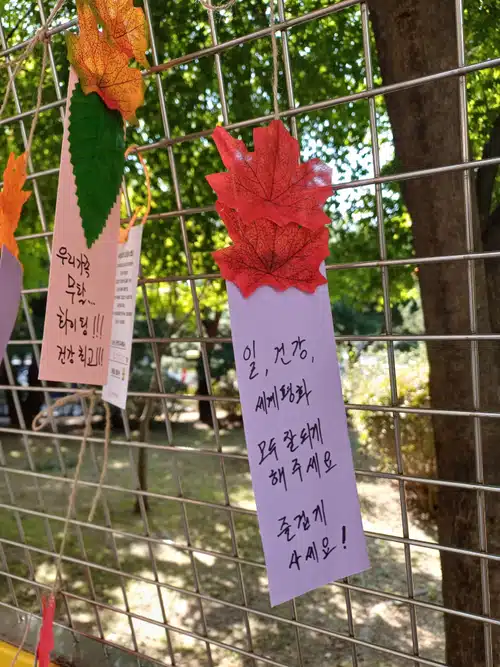 우리가족
무탈...
화이팅!!!
건강 최고!!!
일, 건강,
세계평화
모두 잘되게
해주세요
즐겁게
사세요!